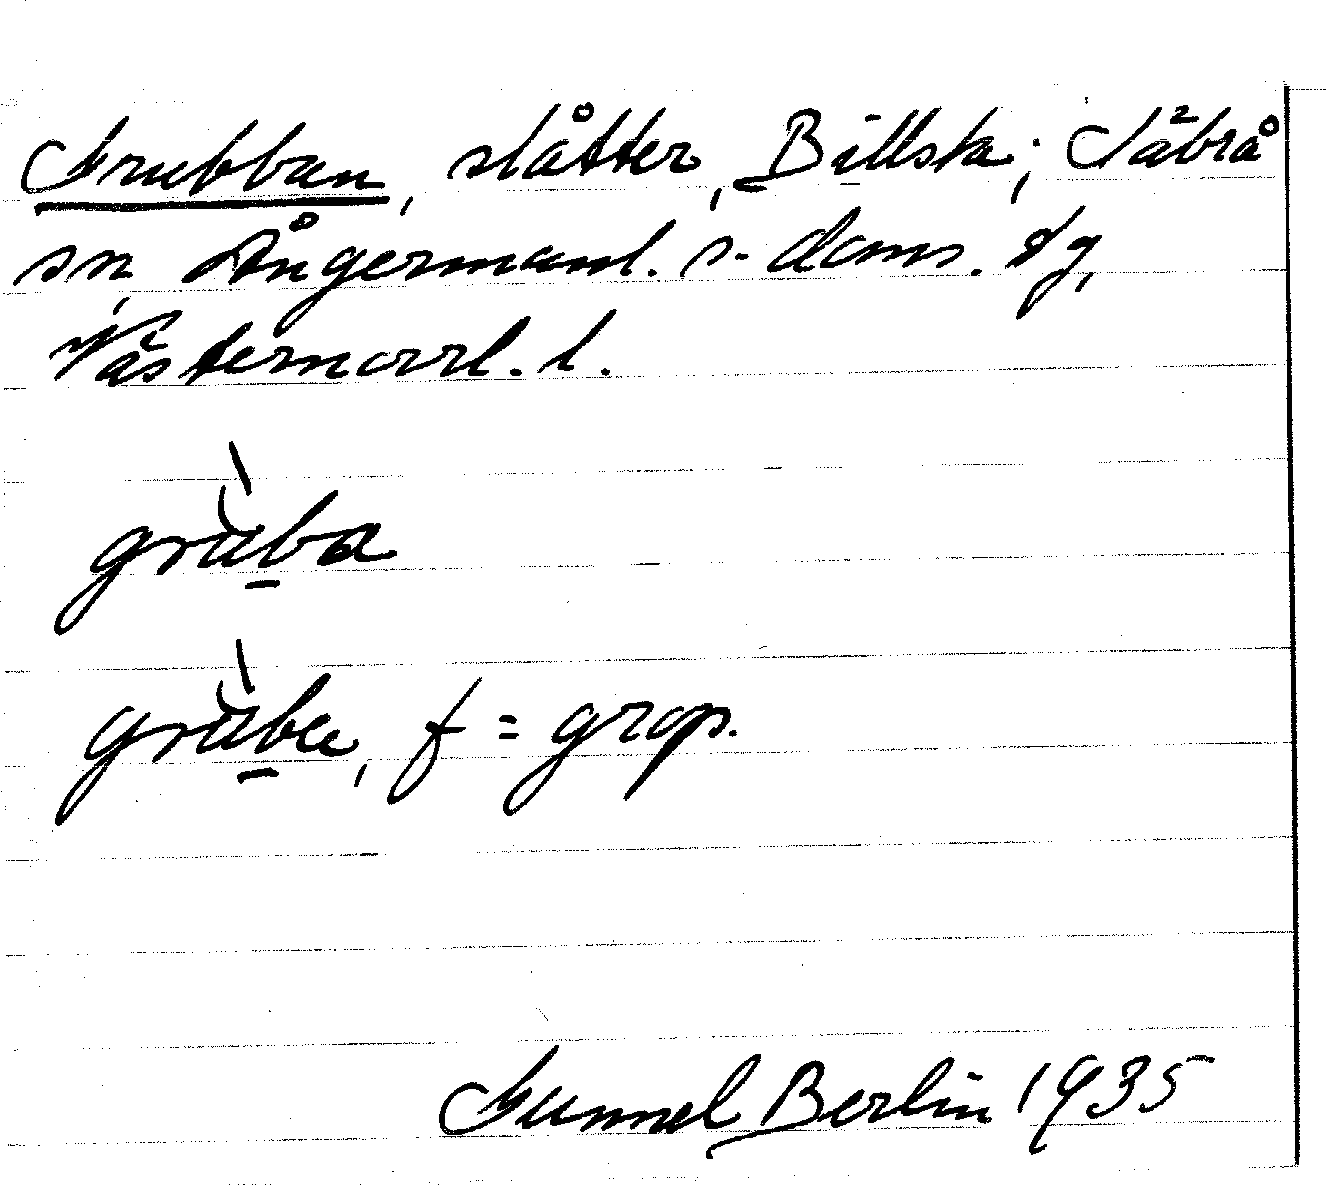 Grubban, slåtter, Billsta; Säbrå
sn, Ångermanl. s. doms. tg,
Västernorrl. l.
gru̠ba
gru̠ba, f = grop.
Gunnel Berlin 1935